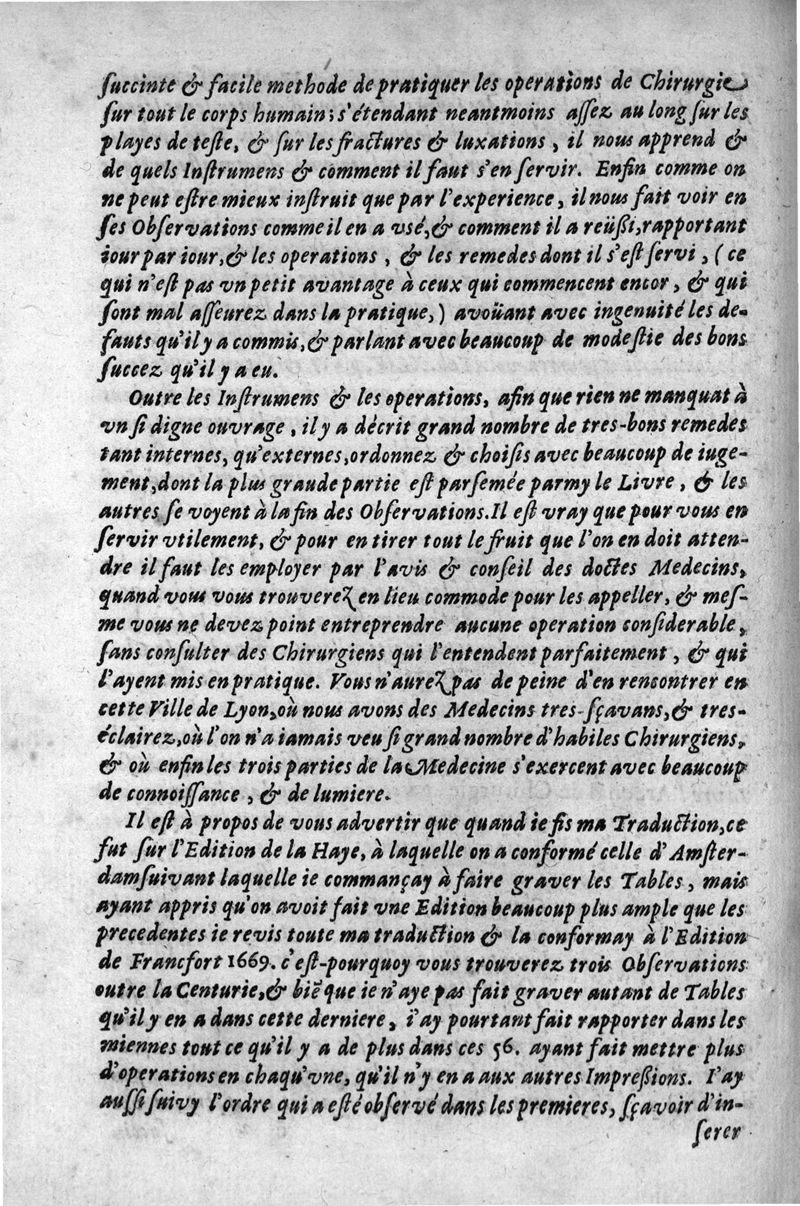 ſuccinte & facile methode de pratiquer les operations de Chirurgie
ſur tout le corps humain; s'étendant neantmoins aſſez au long ſur les
playes de teſte, & ſur les fractures & luxations, il nous apprend &
de quels Inſtrumens & comment il faut s'en ſervir. Enfin comme on
ne peut eſtre mieux inſtruit que par l'experience, il nous fait voir en
ſes Obſervations comme il en a vsé, & comment il a reüßi, rapportant
iour par iour, & les operations, & les remedes dont il s'eſt ſervi, (ce
qui n'eſt pas vn petit avantage à ceux qui commencent encor, & qui
ſont mal aſſeurez dans la pratique,) avoüant avec ingenuité les de-
fauts qu'il y a commis, & parlant avec beaucoup de modeſtie des bons
ſuccez qu'il y a eu.
Outre les Inſtrumens & les operations, afin que rien ne manquat à
vn ſi digne ouvrage, il y a décrit grand nombre de tres-bons remedes
tant internes, qu'externes, ordonnez & choiſis avec beaucoup de iuge-
ment, dont la plus graude partie eſt parſemée parmy le Livre, & les
autres ſe voyent à la fin des Obſervations. Il eſt vray que pour vous en
ſervir vtilement, & pour en tirer tout le fruit que l'on en doit atten-
dre il faut les employer par l'avis & conſeil des doctes Medecins,
quand vous vous trouverez en lieu commode pour les appeller, & meſ-
me vous ne devez point entreprendre aucune operation conſiderable,
ſans conſulter des Chirurgiens qui l'entendent parfaitement, & qui
l'ayent mis en pratique. Vous n'aurez pas de peine d'en rencontrer en
cette Ville de Lyon, où nous avons des Medecins tres-ſçavans, & tres-
éclairez, où l'on n'a iamais veu ſi grand nombre d'habiles Chirurgiens,
& où enfin les trois parties de la Medecine s'exercent avec beaucoup
de connoiſſance, & de lumiere.
Il eſt à propos de vous advertir que quand ie fis ma Traduction, ce
fut ſur l'Edition de la Haye, à laquelle on a conformé celle d'Amſter-
dam ſuivant laquelle ie commançay à faire graver les Tables, mais
ayant appris qu'on avoit fait vne Edition beaucoup plus ample que les
precedentes ie revis toute ma traduction & la conformay à l'Edition
de Francfort 1669. c'eſt-pourquoy vous trouverez trois Obſervations
outre la Centurie, & biẽ que ie n'aye pas fait graver autant de Tables
qu'il y en a dans cette derniere, i'ay pourtant fait rapporter dans les
miennes tout ce qu'il y a de plus dans ces 56. ayant fait mettre plus
d'operations en chaqu'vne, qu'il n'y en a aux autres Impreßions. I'ay
auſſi ſuivy l'ordre qui a eſté obſervé dans les premieres, ſçavoir d'in-
ſerer